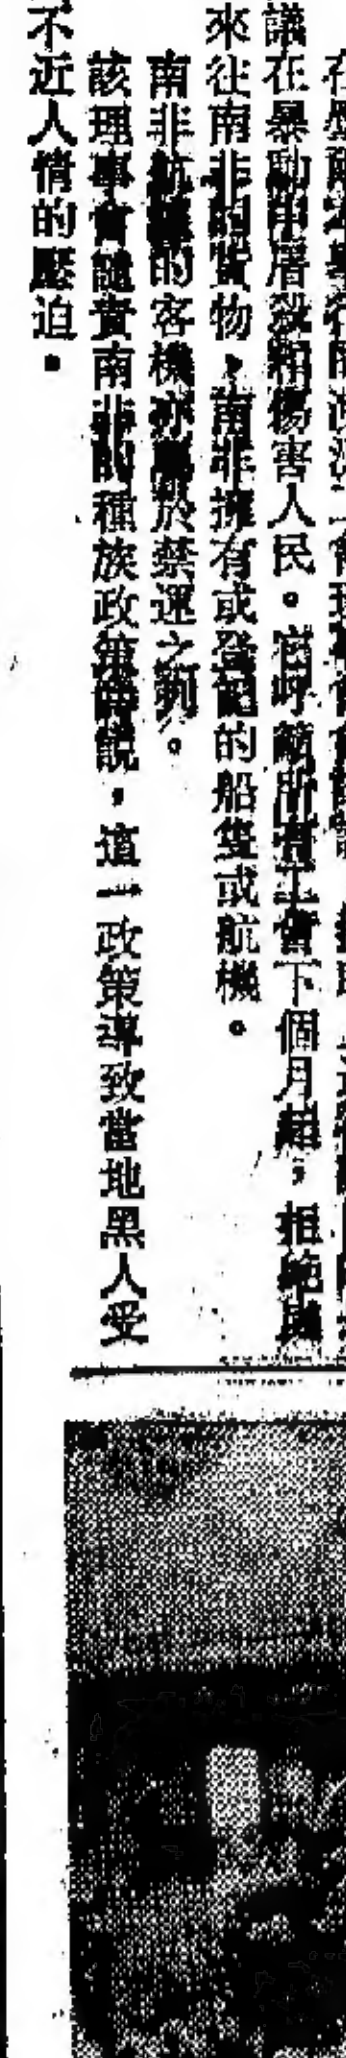 議在暴動中屠殺和傷害人民。它呼籲所有工會下個月起，拒絕與
來往南非的貨物，南非擁有或登記的船隻或航機。
南非航機的客機亦屬於禁運之列。
該理事會譴責南非的種族政策時說，這一政策導致當地黑人受
不近人情的壓迫。